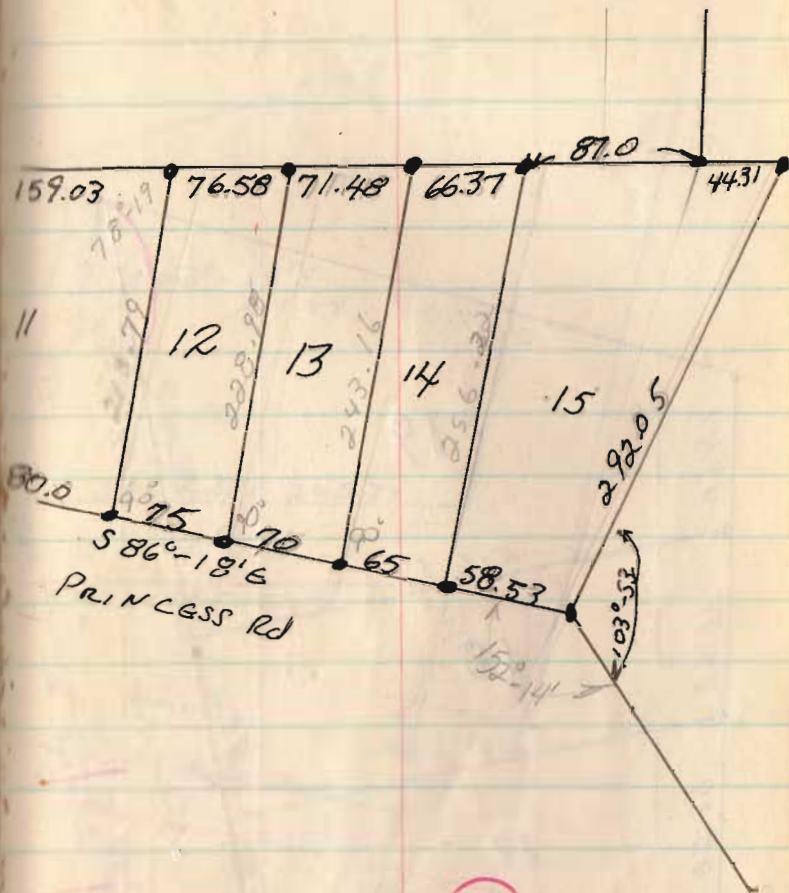 87.0
159.03 76.58 71.48 66.37 44.31
78°-19
11 12 13 14 15
213.79 228.98 243.16 256.32 292.05
80.0 90° 75 90° 70 90° 65 58.53
S 86°-18'E
PRINCESS Rd
103°-53
152°-14'